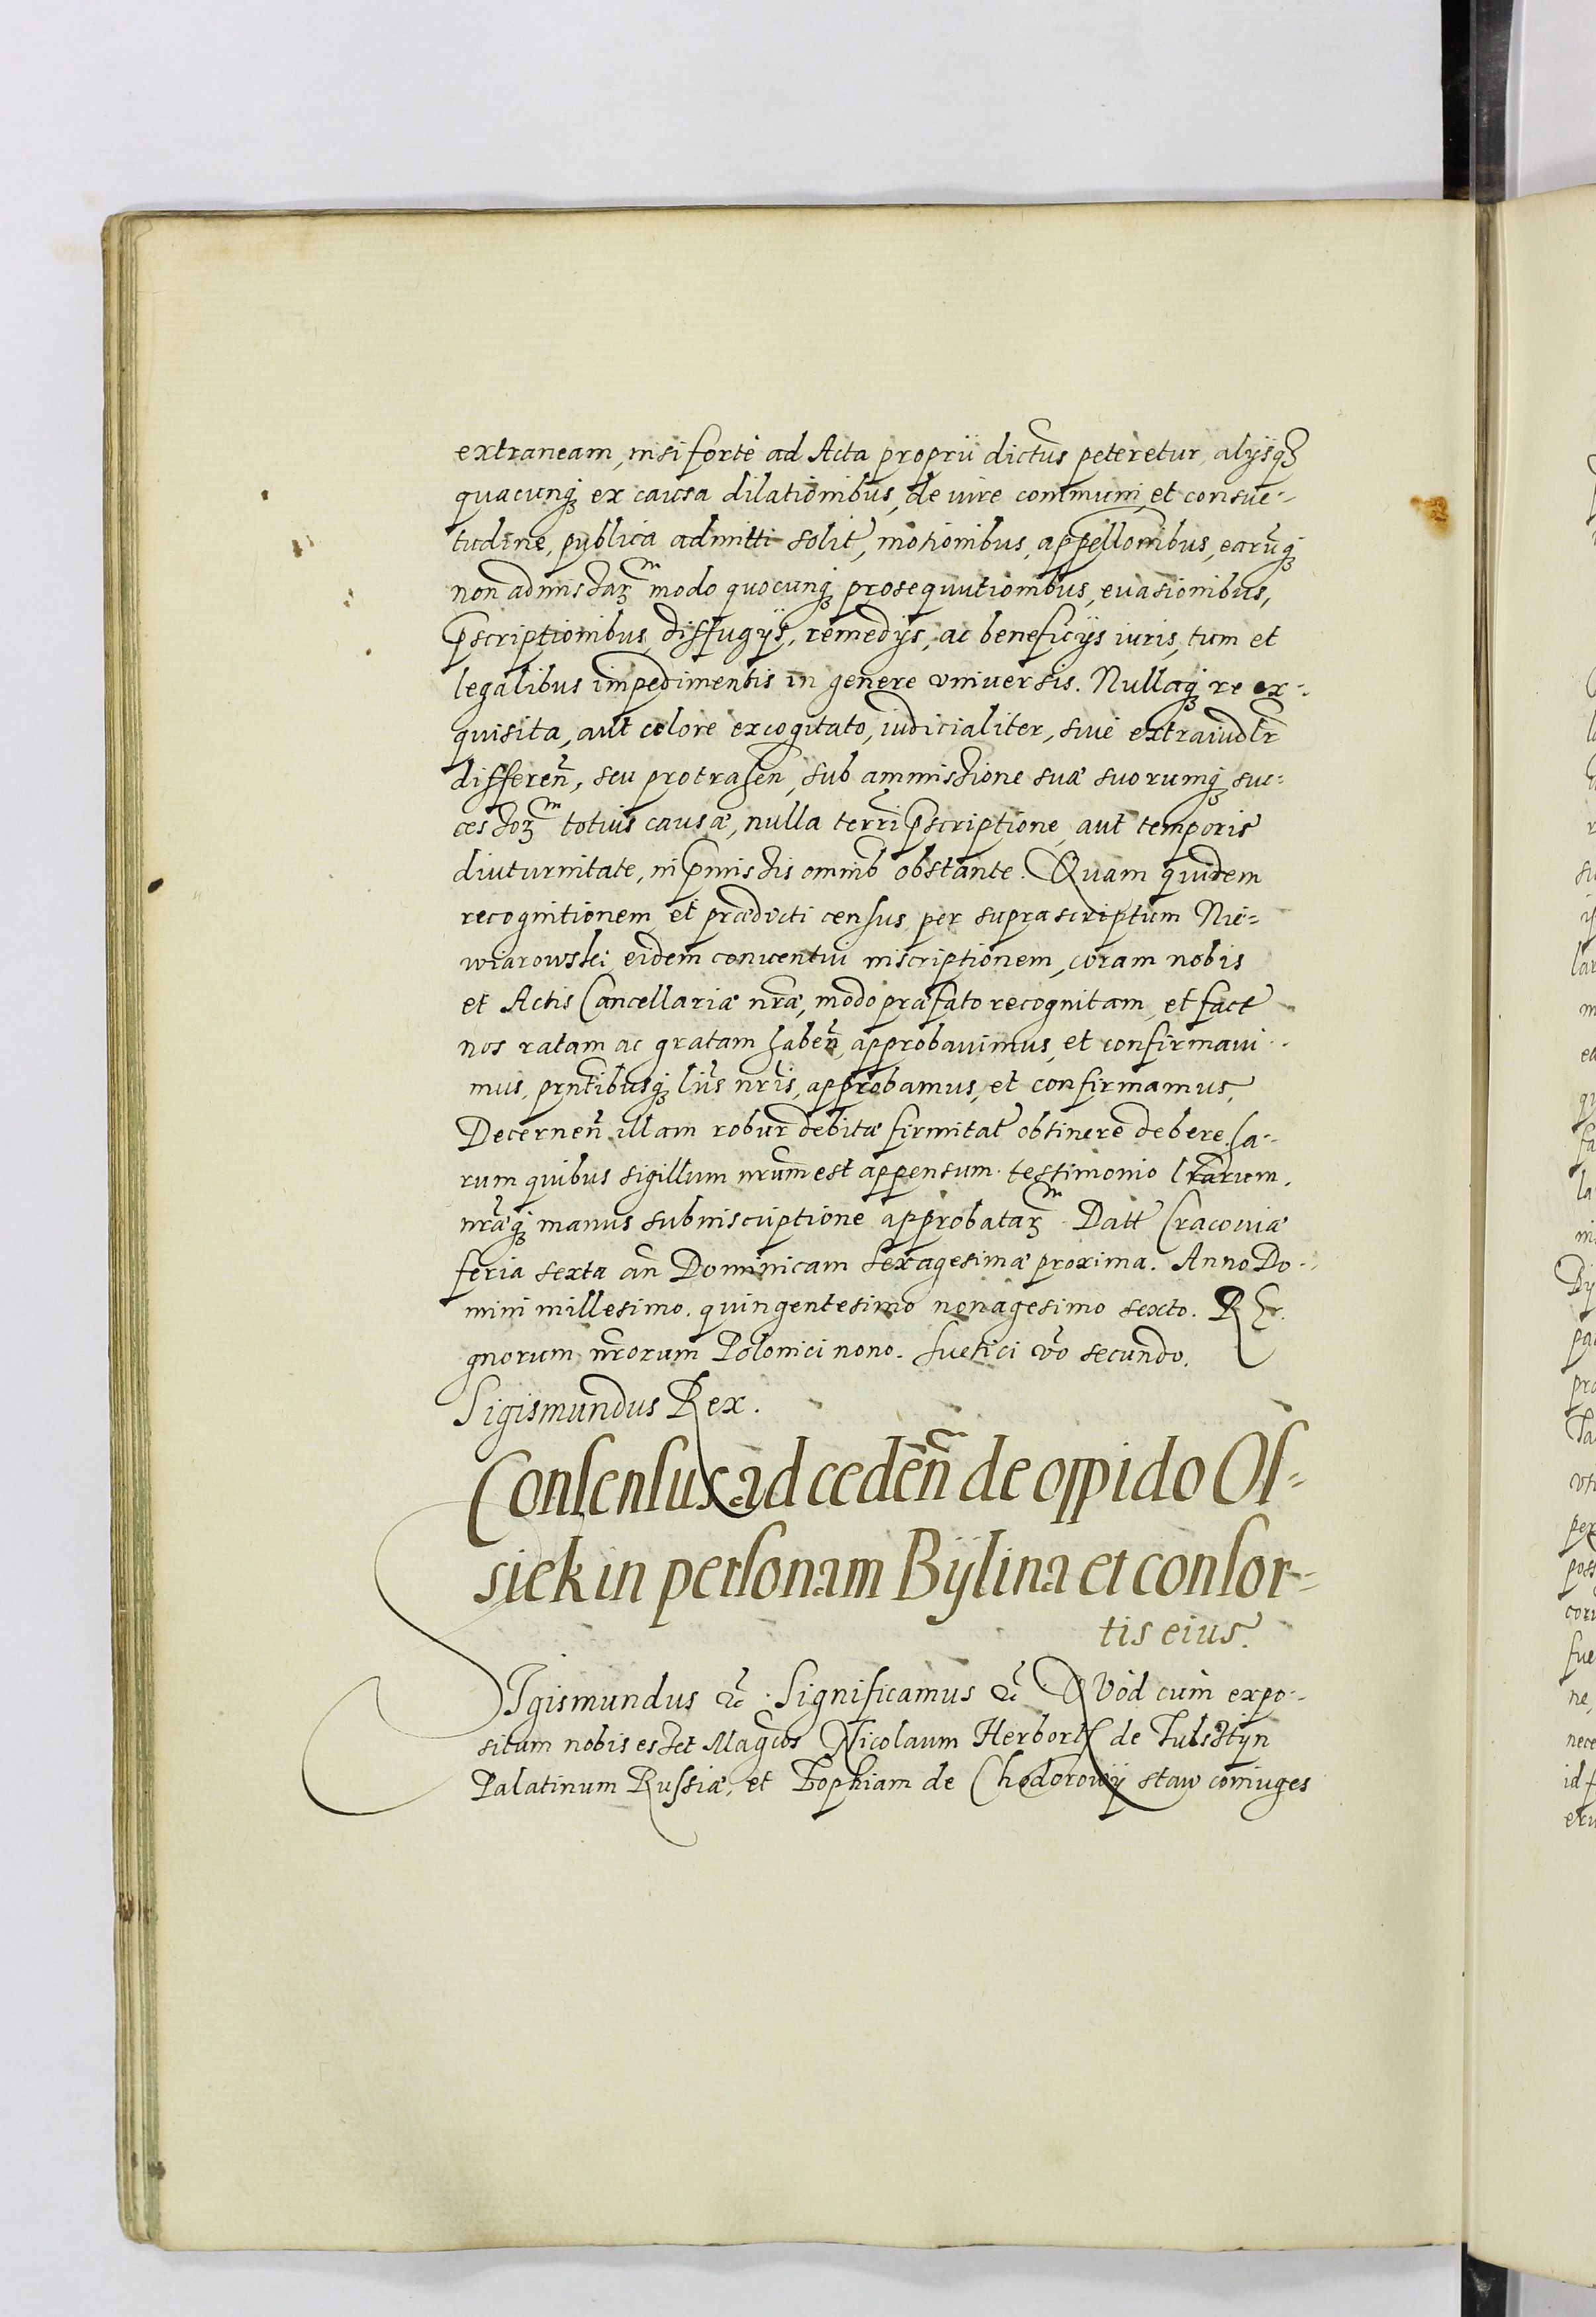 extraneam, nisi fortè ad Acta proprii dictus peteretur, alijsq́
quacunq́ ex causa dilationibus, de iure communi et consue-
tudine, publica admitti solit, motionibus, appellonibus, earūq́
non admissarꝫ modo quocunq́ prosequutionibus, euasionibus,
p̄scriptionibus, diffugijs, remedijs, ac beneficijs iuris, tum et
legalibus impedimentis in genere vniuersis. Nullaq́ re ex-
quisita, aut colore excogitato, iudicialiter, siuè extraiudlr
differeñ, seu protraheñ, sub ammissione suæ suorumq́ suc-
cessorꝫ totius causæ, nulla terrī p̄scriptione, aut temporis
diuturnitate, in p̄missis omnib obstante. Quam quidem
recognitionem, et prædicti census, per suprascriptum Nie-
wiarowski eidem conuentui inscriptionem, coram nobis
et Actis Cancellariæ nr̄æ, modo præfato recognitam, et fact
nos ratam ac gratam habeñ, approbauimus, et confirmaui-
mus, prn̄tibusq́ lr̄is nr̄is, approbamus, et confirmamus,
Decerneñ illam robur debitæ firmitat obtinere debere. Ha-
rum quibus sigillum nr̄um est appensum testimonio lr̄arum,
nr̄aq́ manus subinscriptione approbatarꝫ. Datt Cracouiæ
feria sexta añ Dominicam Sexagesimæ proxima. Anno Do-
mini millesimo. quingentesimo nonagesimo sexto. Re-
gnorum nr̄orum Polonici nono. Suetici vō secundo.
Sigismundus Rex.
Consensus ad cedēñ de oppido Os-
siek in personam Bÿlina et consor-
tis eius.
SIgismundus &c. Significamus &c QVòd cùm expo-
situm nobis esset Magcos Nicolaum Herborth de Fulsstÿn
Palatinum Russiæ, et Sophiam de Chodorowÿ staw coniuges